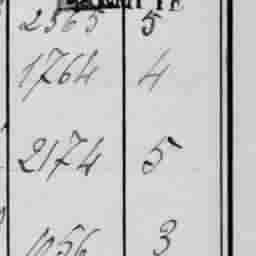 2565 5
1764 4
2174 5
1056 3